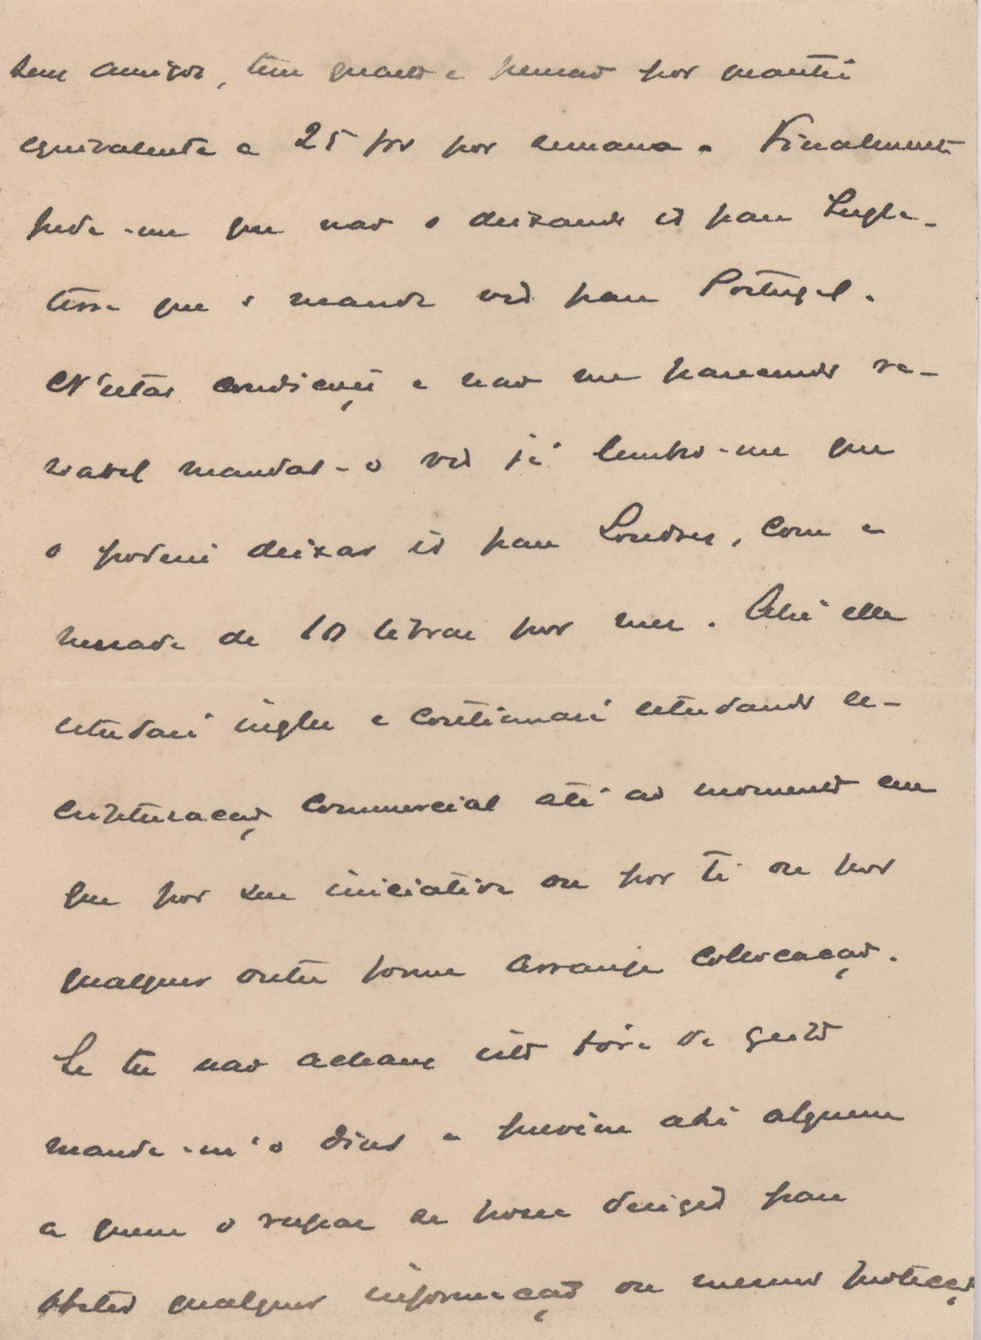 tem amigos, tem quarto e pensao por quantia
equivalente a 25 frs por semana. Finalmente
pede-me que nao o deixando ir para Ingla-
terra que o mande vir para Portugal.
N'estas condições e nao me parecendo ra-
soavel mandal-o vir já lembro-me que
o poderei deixar ir para Londres, com a
mesada de 10 libras por mez. Ahi elle
estudará inglez e continuará estudando es-
cripturaçao commercial até ao momento em
que por sua iniciativa ou por ti ou por
qualquer outra forma arranje collocaçao.
Se tu nao achares isto fóra de geito
manda-m'o dizer e previne ahi alguem
a quem o rapaz se possa dirigir para
obter qualquer informaçao ou mesmo protecçao